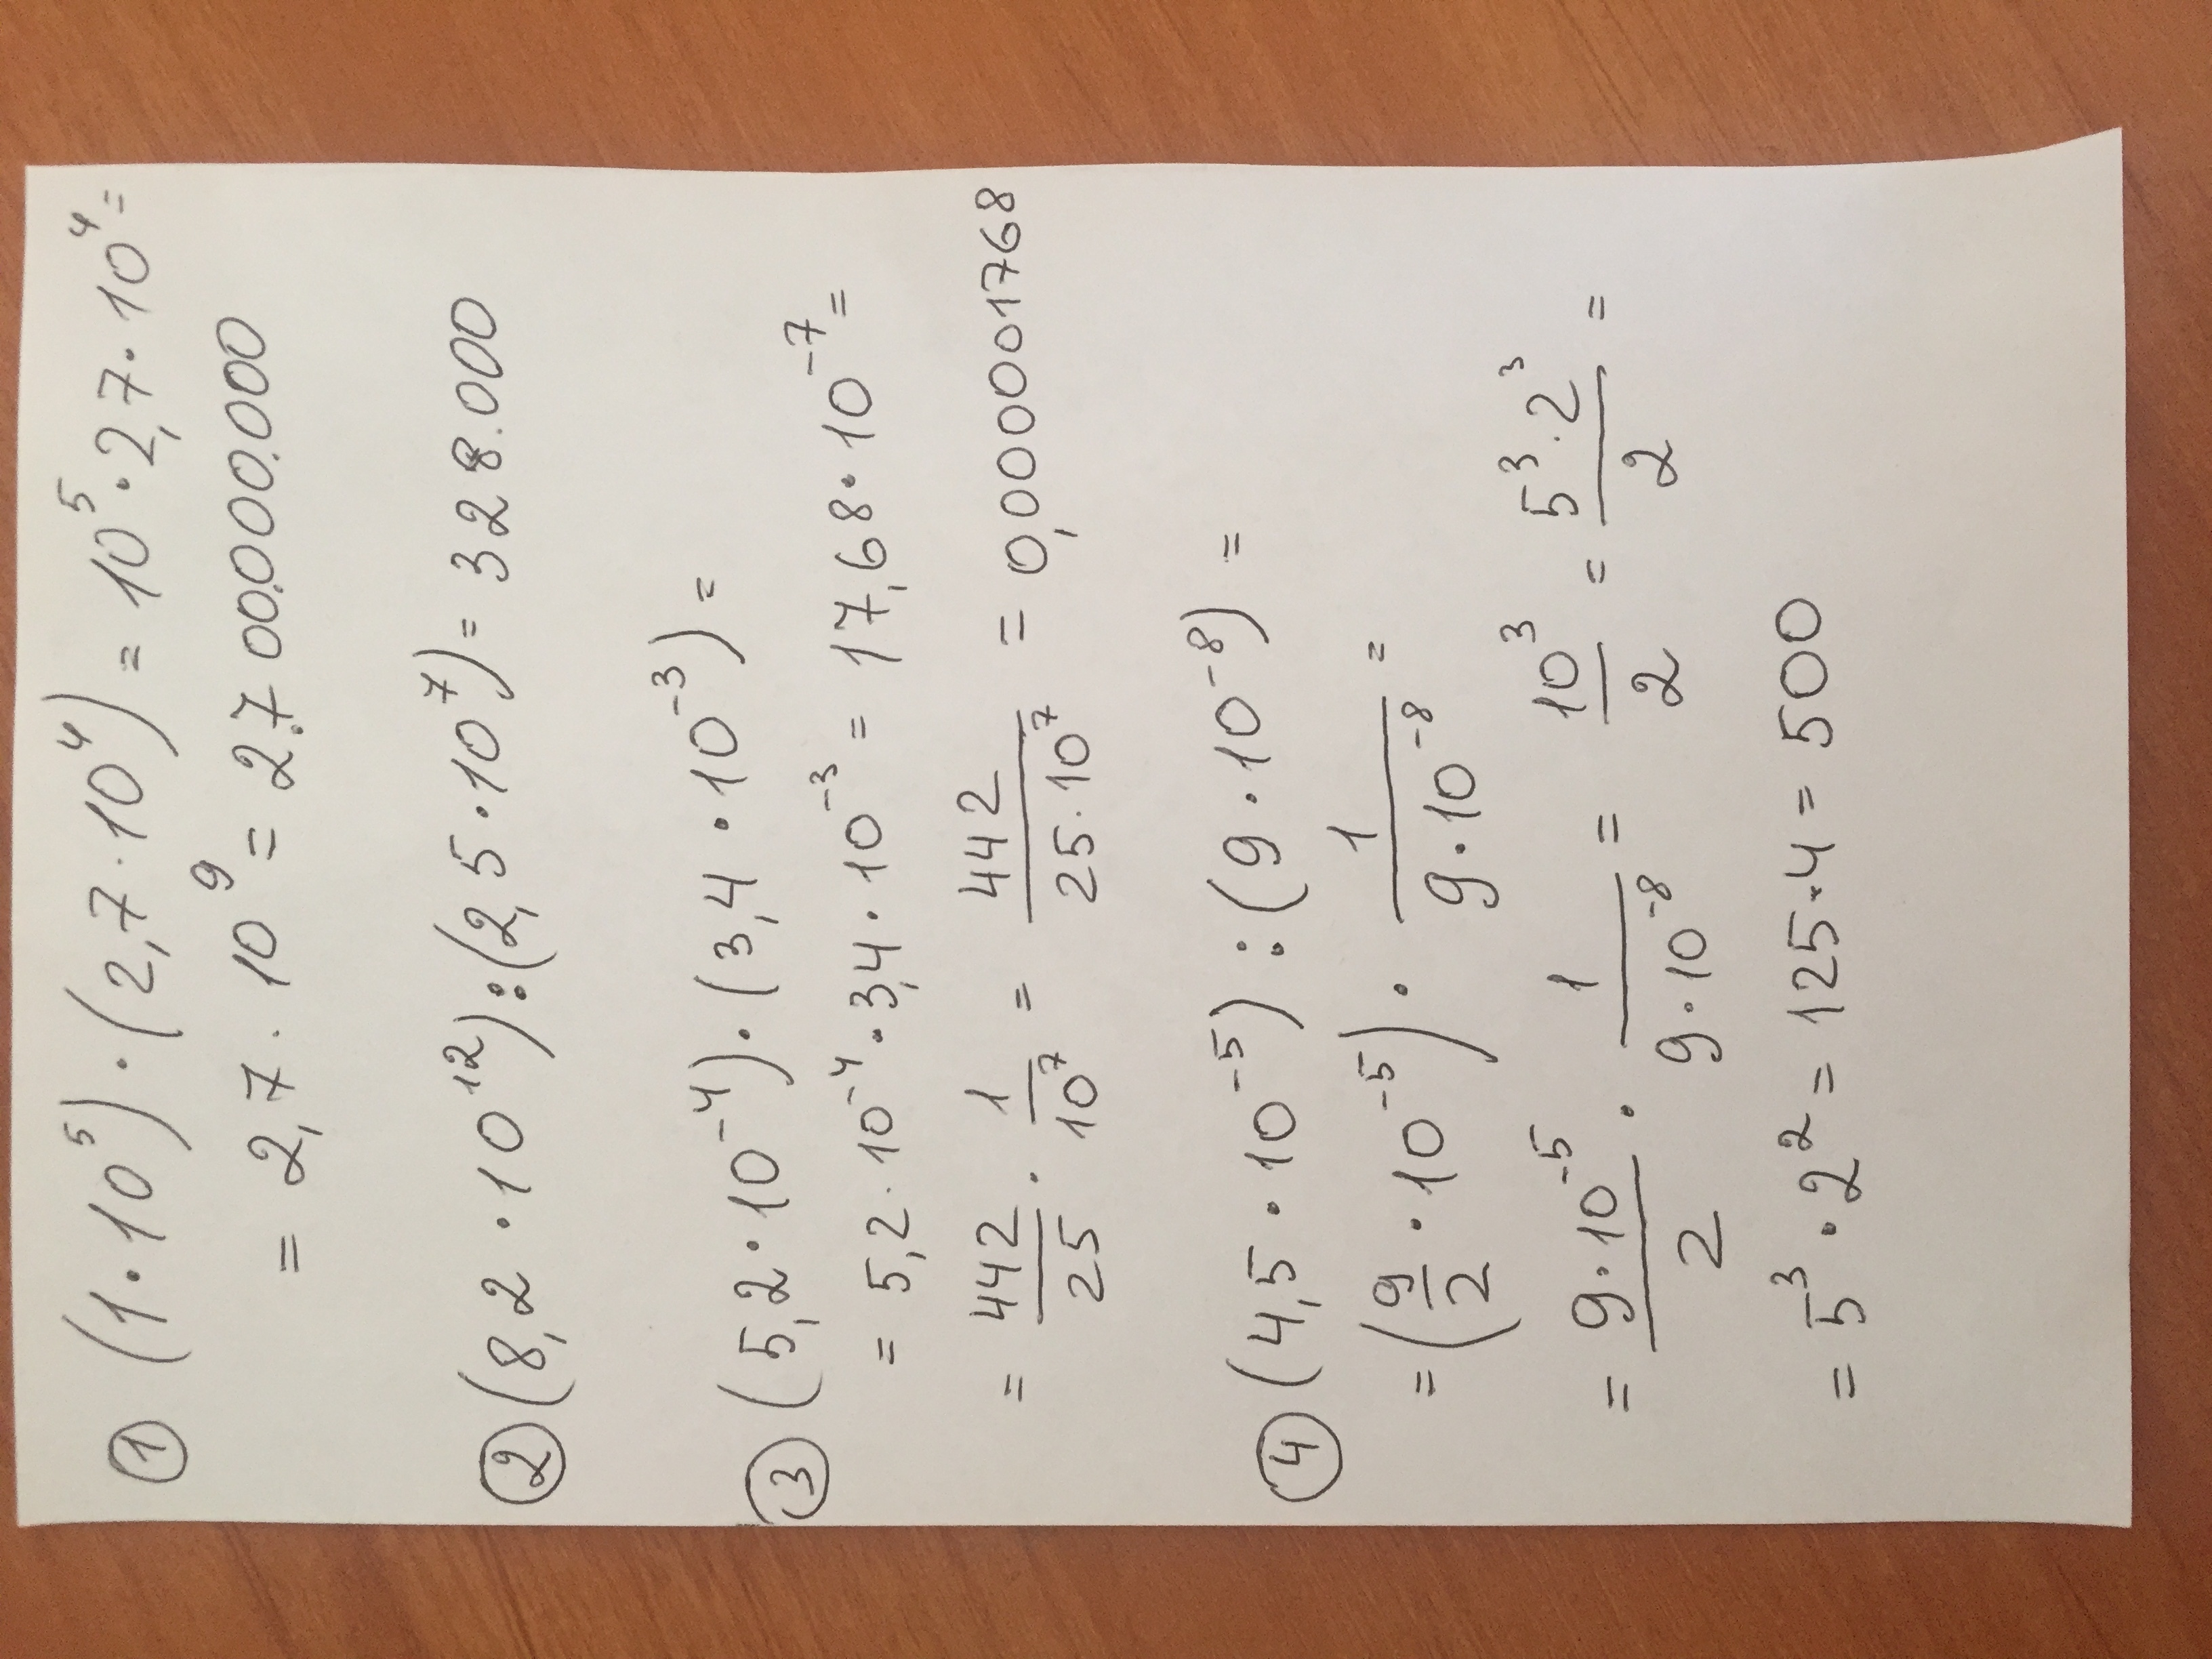 ① (1·10⁵)·(2,7·10⁴) = 10⁵·2,7·10⁴ =
= 2,7·10⁹ = 2.700.000.000
② (8,2·10¹²):(2,5·10⁷) = 328.000
③ (5,2·10⁻⁴)·(3,4·10⁻³) =
= 5,2·10⁻⁴·3,4·10⁻³ = 17,68·10⁻⁷ =
= 442/25 · 1/10⁷ = 442/(25·10⁷) = 0,000001768
④ (4,5·10⁻⁵):(9·10⁻⁸) =
= (9/2·10⁻⁵)·1/(9·10⁻⁸) =
= (9·10⁻⁵)/2 · 1/(9·10⁻⁸) = 10³/2 = (5³·2³)/2 =
= 5³·2² = 125·4 = 500